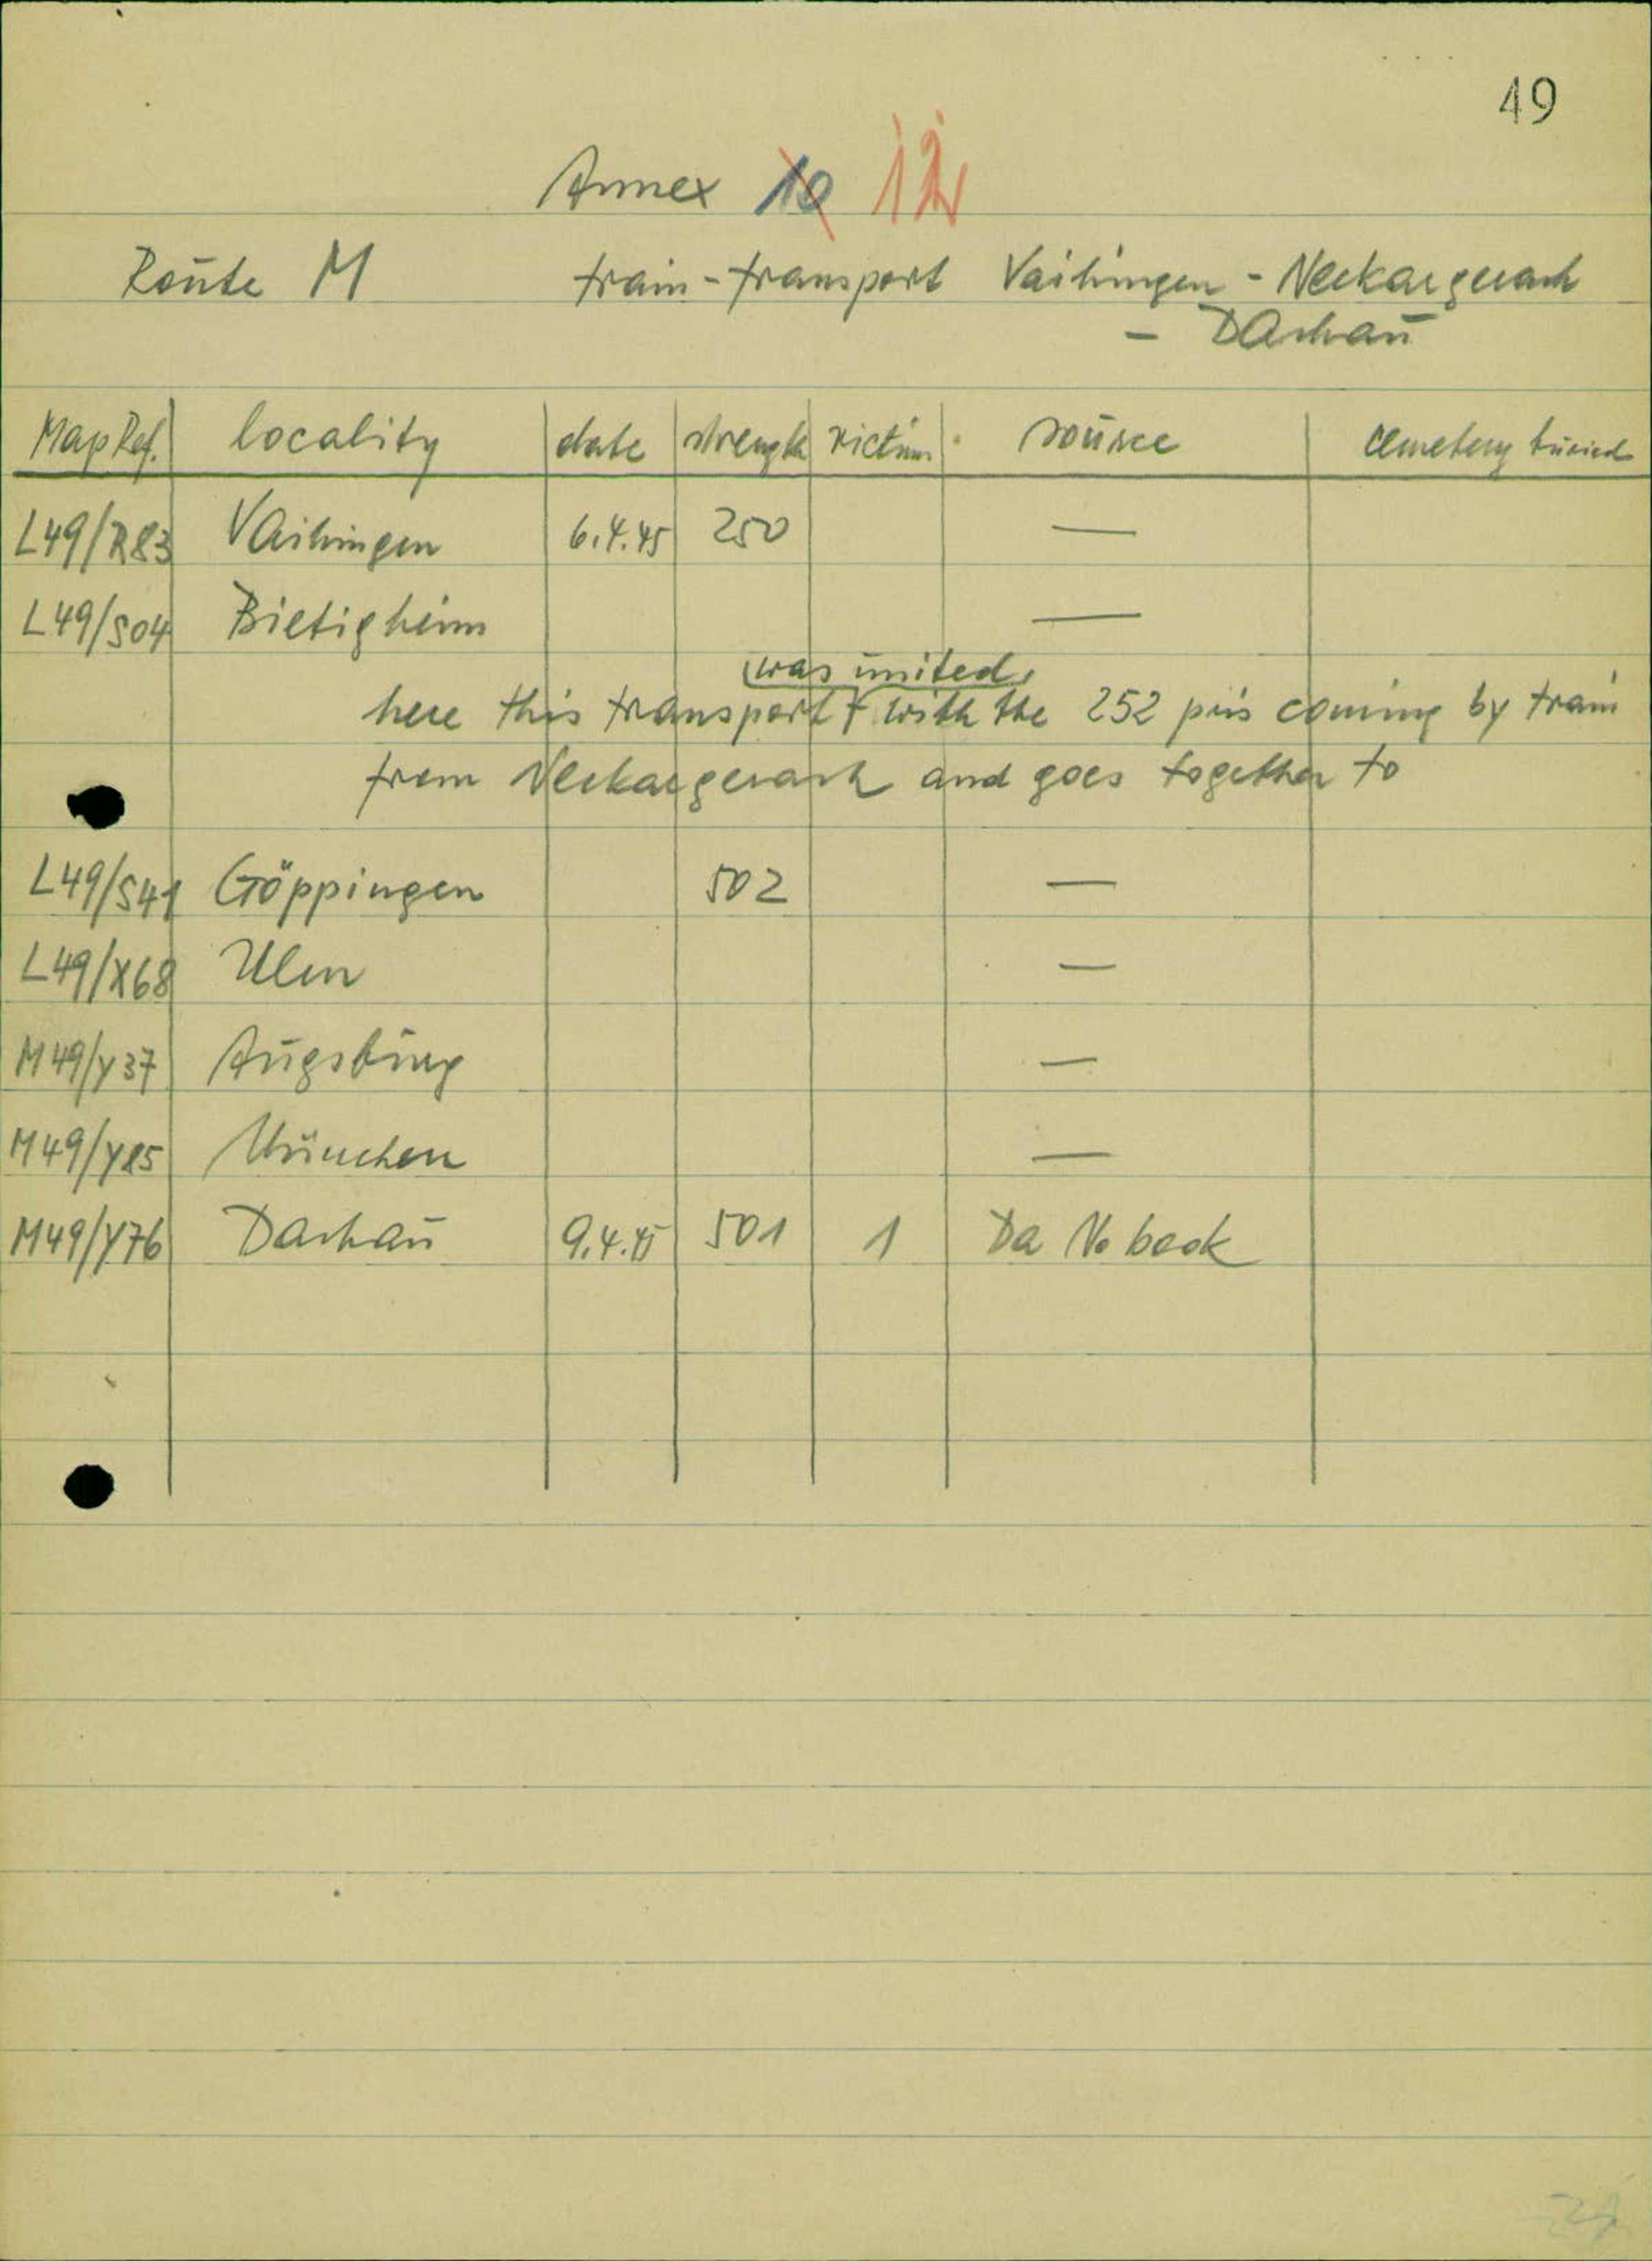 49
Annex 10 12
Route M train-transport Vaihingen - Neckargerach
- DAchau
Map Ref. locality date strength victims source cemetery buried
L49/R83 VAihingen 6.4.45 250 —
L49/S04 Bietigheim —
was united
here this transport with the 252 pris coming by train
from Neckargerach and goes together to
L49/S41 Göppingen 502 —
L49/X68 Ulm —
M49/Y37 Augsburg —
M49/Y85 München —
M49/Y76 Dachau 9.4.45 501 1 Da No book